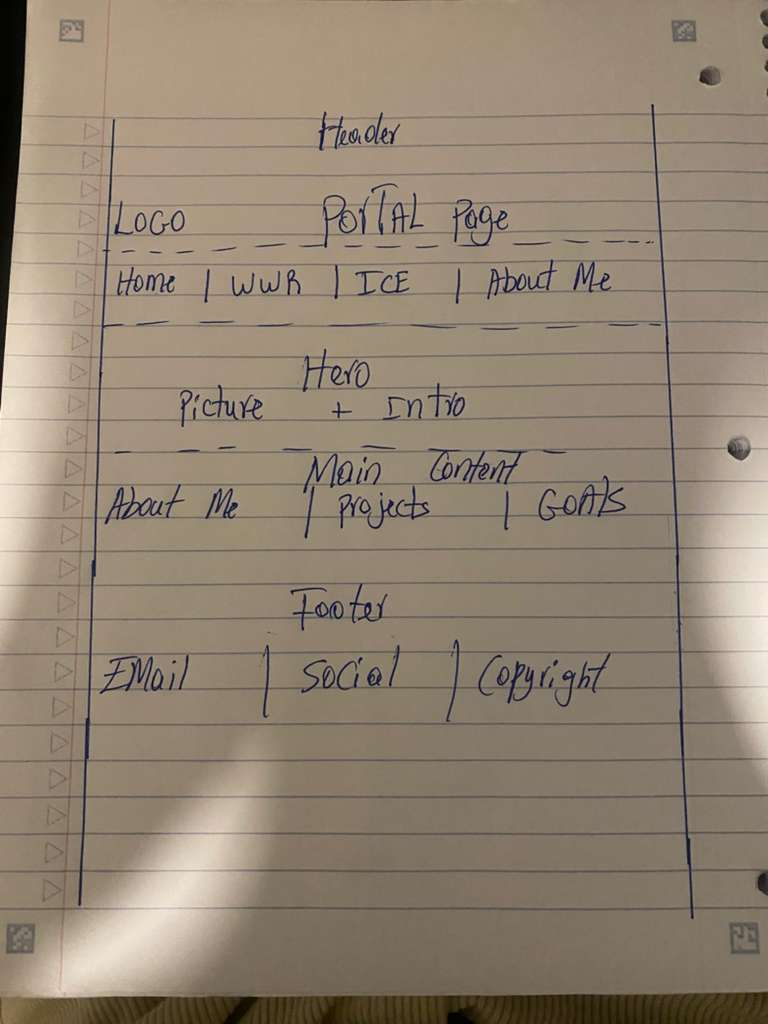 Header
LOGO PORTAL Page
Home | WWR | ICE | About Me
Hero
Picture + Intro
Main Content
About Me | Projects | GOAls
Footer
EMail | Social | Copyright